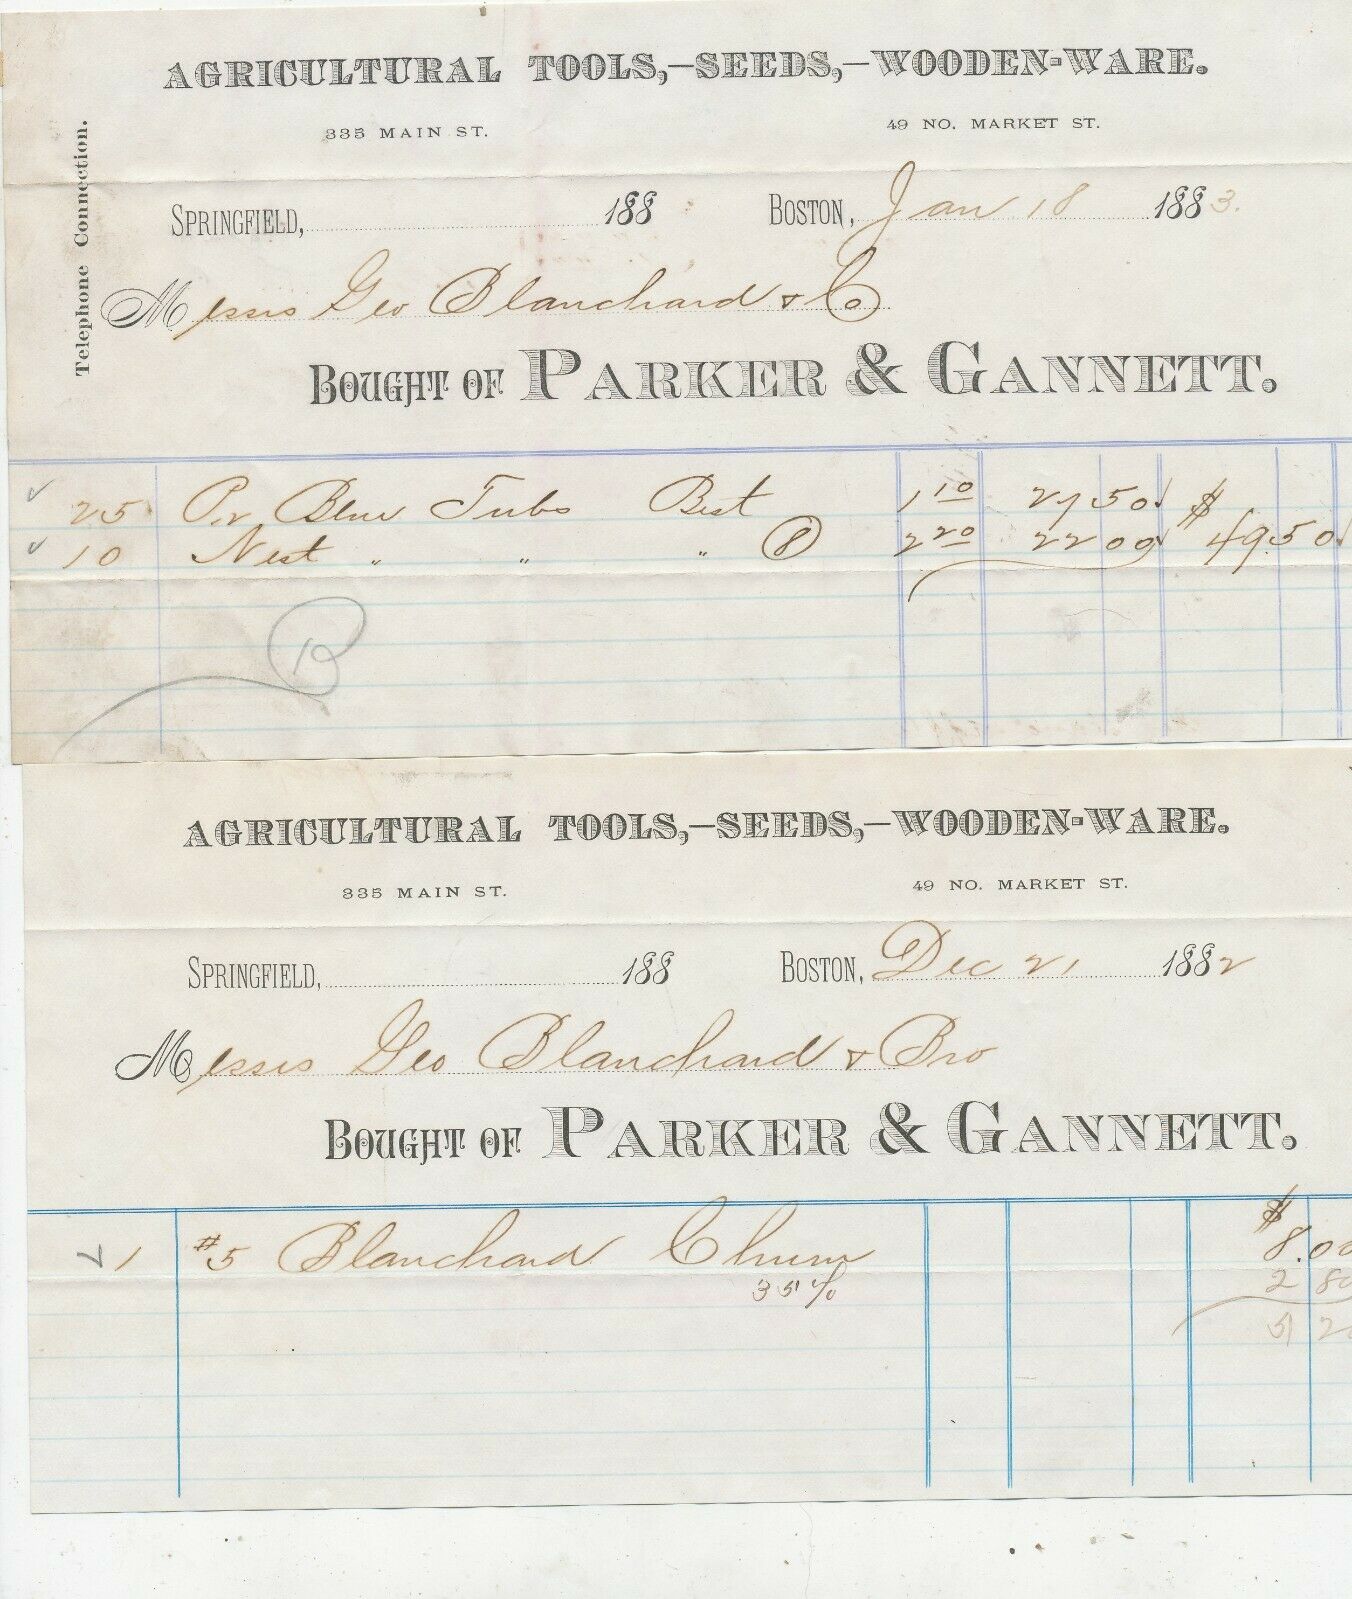 AGRICULTURAL TOOLS,—SEEDS,—WOODEN-WARE.
335 MAIN ST. 49 NO. MARKET ST.
Telephone Connection.
SPRINGFIELD, 188 BOSTON, Jan 18 1883.
Messrs Geo Blanchard & Co
BOUGHT OF PARKER & GANNETT.
25 Pr Blue Tubs Best 1 10 27 50 $
10 Nest " " " 2 20 22 00 49.50
AGRICULTURAL TOOLS,—SEEDS,—WOODEN-WARE.
335 MAIN ST. 49 NO. MARKET ST.
SPRINGFIELD, 188 BOSTON, Dec 21 1882
Messrs Geo Blanchard & Bro
BOUGHT OF PARKER & GANNETT.
1 #5 Blanchard Churn $8.00
35% 2 80
5 20